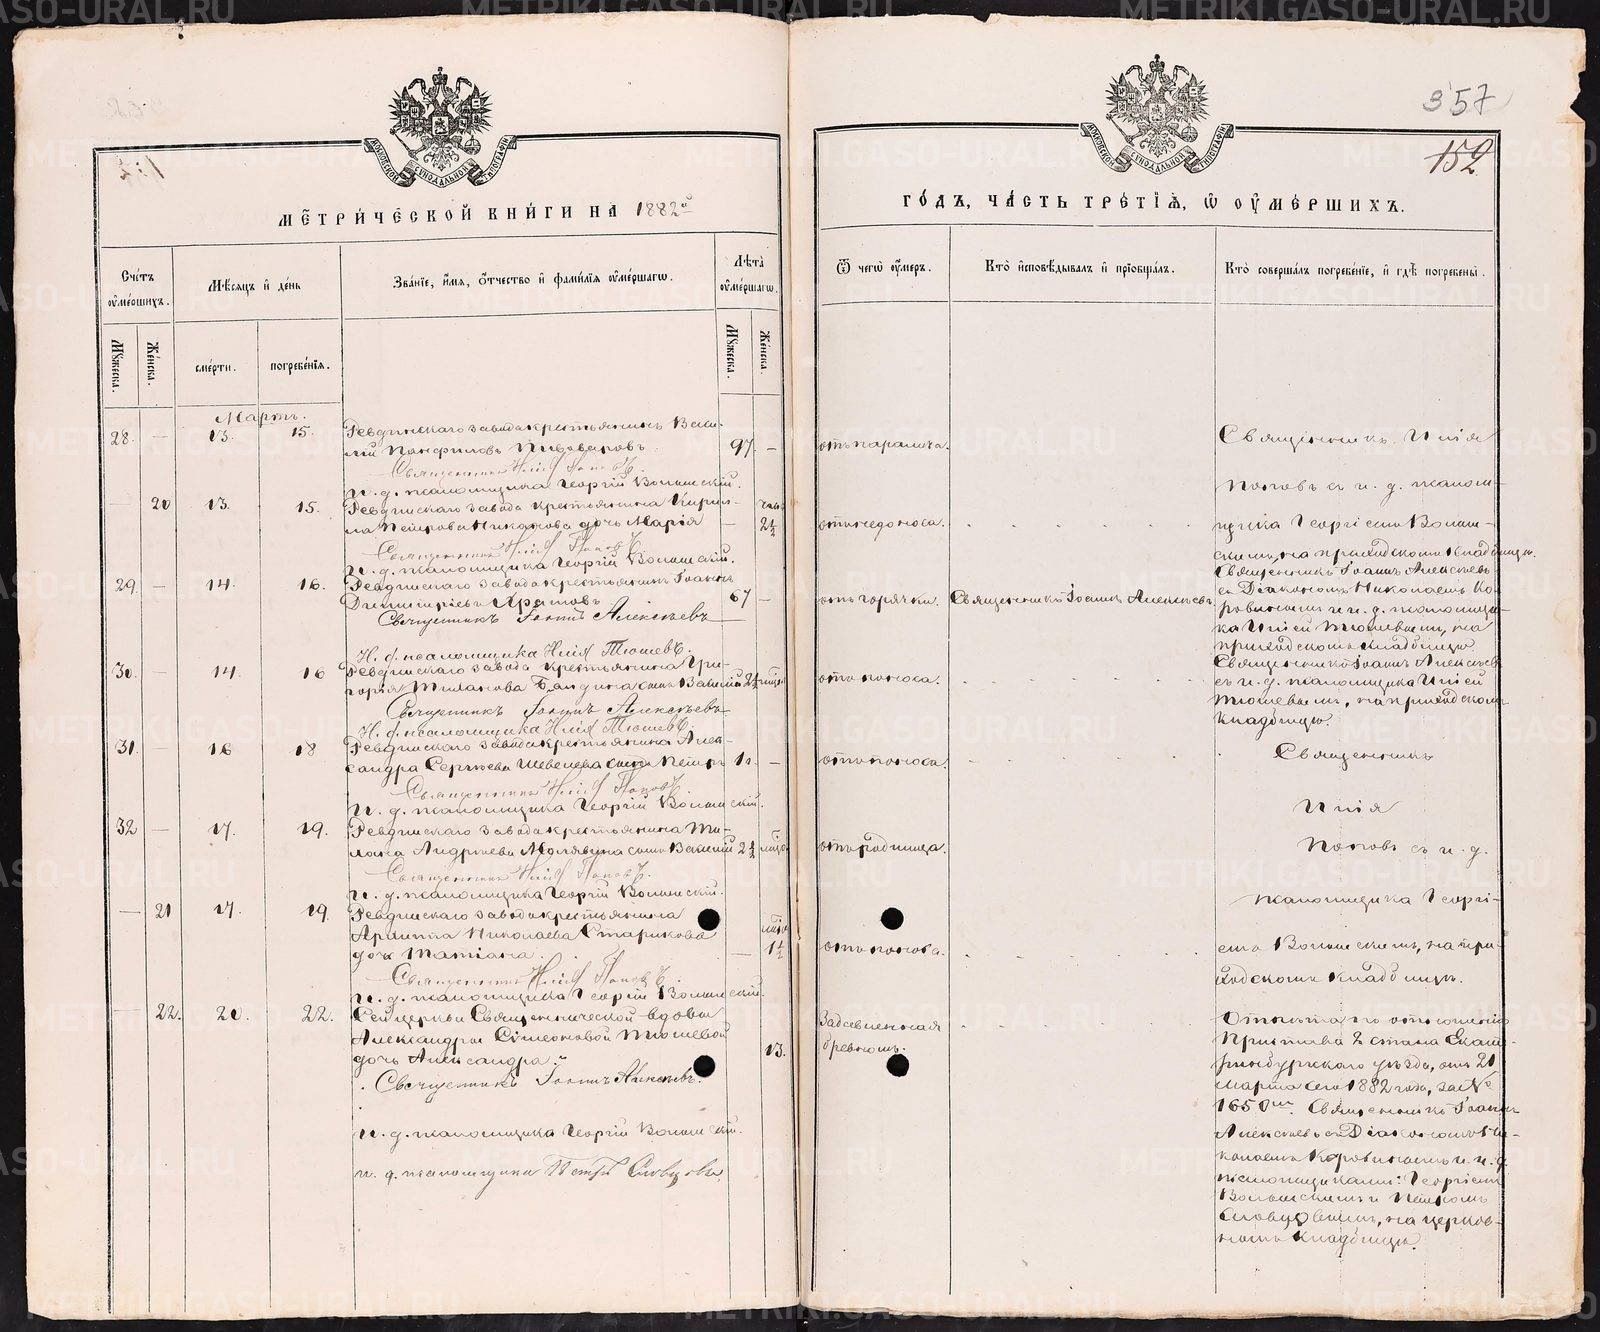 357
152
МЕТРИЧЕСКОЙ КНИГИ НА 1882й
ГОДЪ, ЧАСТЬ ТРЕТІЯ, Ѿ ОУМЕРШИХЪ.
Счетъ оумершихъ.
Мѣсяцъ и день
Званіе, имя, отчество и фамилія оумершагѡ.
Лѣта оумершагѡ.
Ѿ чегѡ оумеръ.
Кто исповѣдывалъ и пріобщалъ.
Кто совершалъ погребеніе, и гдѣ погребены.
Мужеска.
Женска.
смерти.
погребенія.
Мужеска.
Женска.
Мартъ.
28. — 13. 15. Ревдинскаго завода крестьянинъ Васи-
лій Панфиловъ Пивоваровъ 97. — отъ паралича.
Священникъ Илія Поповъ.
и. д. псаломщика Георгій Волынскій.
— 20 13. 15. Ревдинскаго завода крестьянина Кирил-
ла Петрова дочь Марія — 2½ отъ недоноса.
Священникъ Илія Поповъ.
и. д. псаломщика Георгій Волынскій.
Священникъ Илія
Поповъ съ и. д. псалом-
щика Георгіемъ Волын-
скимъ, на приходскомъ кладбищѣ.
29. — 14. 16. Ревдинскаго завода крестьянинъ Іоаннъ
Димитріевъ Храмовъ 67 — отъ горячки. Священникъ Іоаннъ Алексѣевъ.
Священникъ Іоаннъ Алексѣевъ
И. д. псаломщика Илія Тюшевъ.
Священникъ Іоаннъ Алексѣевъ
съ Діакономъ Николаемъ Ко-
ровинымъ и и. д. псаломщи-
ка Иліей Тюшевымъ, на
приходскомъ кладбищѣ
30. — 14. 16 Ревдинскаго завода крестьянина Гри-
горія сынъ Василій 2½ отъ поноса.
Священникъ Іоаннъ Алексѣевъ
И. д. псаломщика Илія Тюшевъ.
Священникъ Іоаннъ Алексѣевъ
съ и. д. псаломщика Иліей
Тюшевымъ, на приходскомъ
кладбищѣ.
31. — 16 18 Ревдинскаго завода крестьянина Алек-
сандра Сергѣева Шевелева сынъ Петръ 1г. — отъ поноса.
Священникъ Илія Поповъ.
и. д. псаломщика Георгій Волынскій.
32 — 17. 19. Ревдинскаго завода крестьянина Ти-
Андреева сынъ Василій 2½ отъ родимца.
Священникъ Илія Поповъ.
и. д. псаломщика Георгій Волынскій.
— 21 17. 19. Ревдинскаго завода крестьянина
Николаева Старикова
дочь Татіана. — 1½ отъ поноса.
Священникъ Илія Поповъ.
и. д. псаломщика Георгій Волынскій.
Священникъ
Илія
Поповъ съ и. д.
псаломщика Георгі-
емъ Волынскимъ, на при-
ходскомъ кладбищѣ.
— 22. 20. 22. Сей церкви Священнической вдовы
Александры Симеоновой Тюшевой
дочь Александра. 13. Задавленная бревномъ.
Священникъ Іоаннъ Алексѣевъ.
и. д. псаломщика Георгій Волынскій.
и. д. псаломщика Петръ Словцовъ.
Отпѣта по отношенію
Пристава 2 стана Екате-
ринбургскаго уѣзда, отъ 21
марта сего 1882 года, за №
1650мъ. Священникъ Іоаннъ
Алексѣевъ съ Діакономъ Ни-
колаемъ Коровинымъ и и. д.
псаломщиками: Георгіемъ
Волынскимъ и Петромъ
Словцовымъ, на церков-
номъ кладбищѣ.